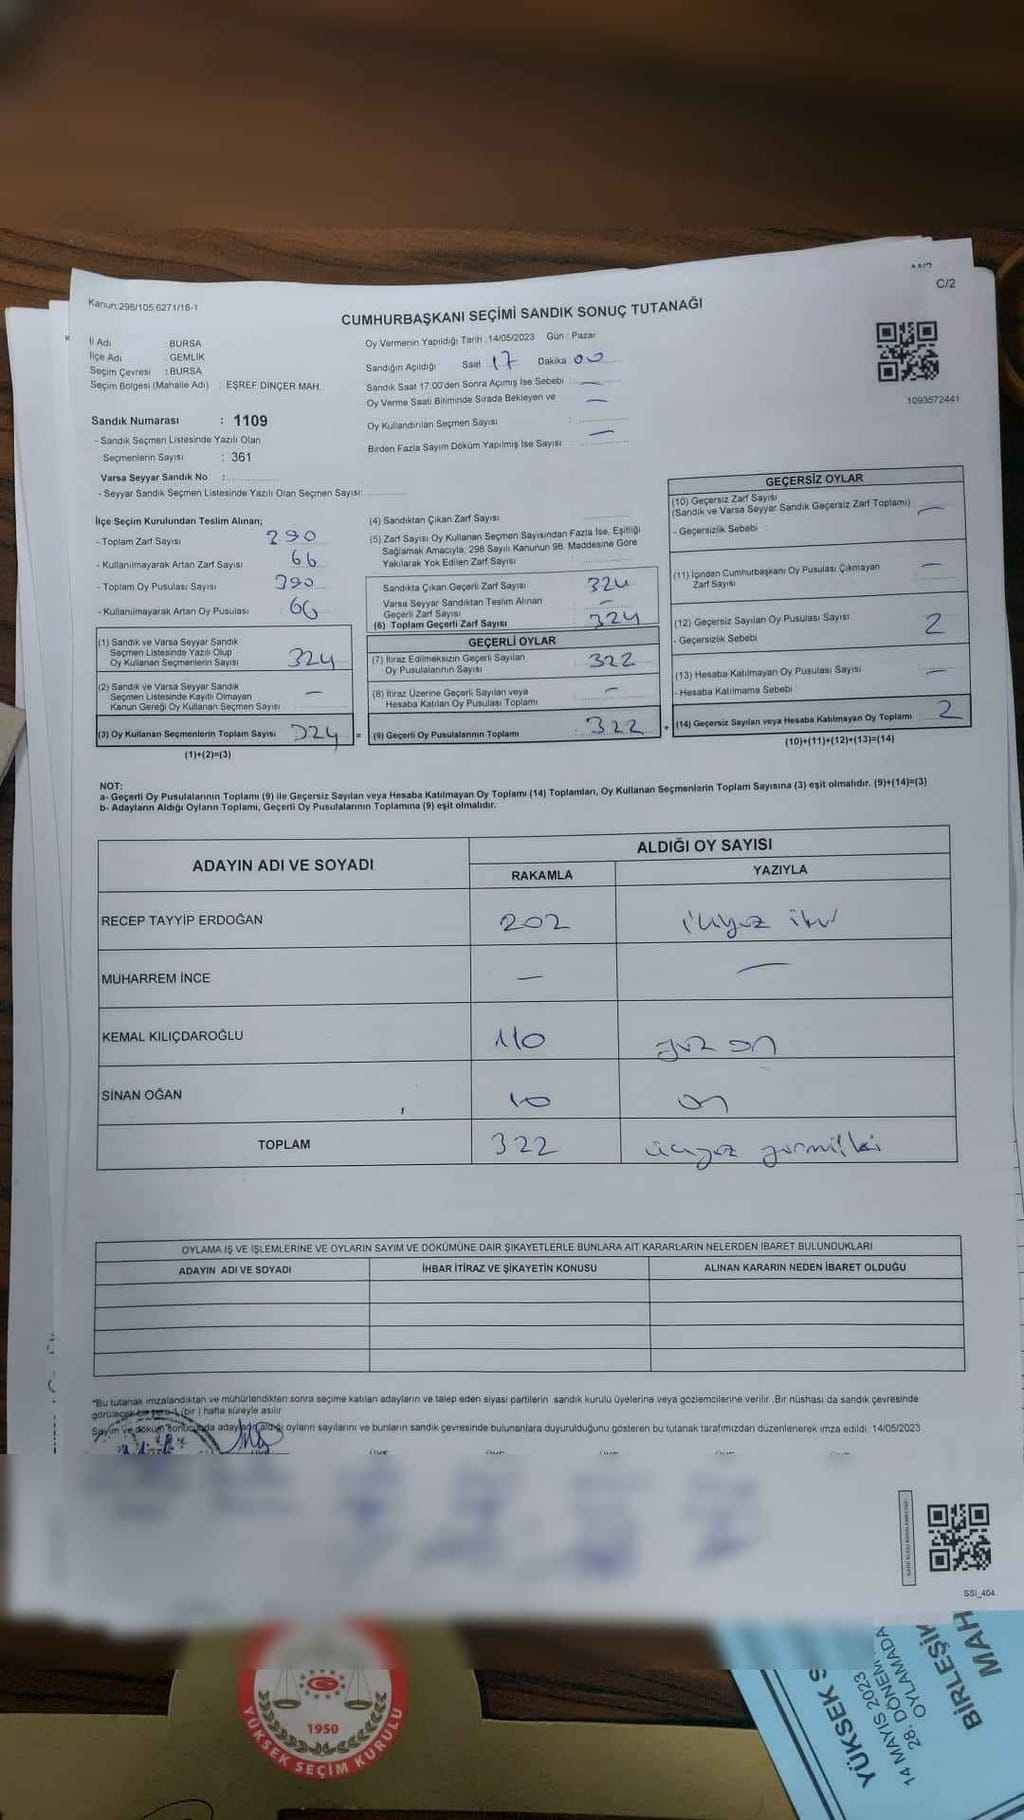 C/2
Kanun:298/105;6271/18-1
CUMHURBAŞKANI SEÇİMİ SANDIK SONUÇ TUTANAĞI
İl Adı : BURSA
İlçe Adı : GEMLİK
Seçim Çevresi : BURSA
Seçim Bölgesi (Mahalle Adı) : EŞREF DİNÇER MAH.
Oy Vermenin Yapıldığı Tarih : 14/05/2023 Gün : Pazar
Sandığın Açıldığı Saat 17 Dakika : 00
Sandık Saat 17:00'den Sonra Açımış İse Sebebi : —
Oy Verme Saati Bitiminde Sırada Bekleyen ve —
Oy Kullandırılan Seçmen Sayısı :
Birden Fazla Sayım Döküm Yapılmış İse Sayısı —
1093572441
Sandık Numarası : 1109
- Sandık Seçmen Listesinde Yazılı Olan
Seçmenlerin Sayısı : 361
Varsa Seyyar Sandık No :
- Seyyar Sandık Seçmen Listesinde Yazılı Olan Seçmen Sayısı:
İlçe Seçim Kurulundan Teslim Alınan;
- Toplam Zarf Sayısı 290
- Kullanılmayarak Artan Zarf Sayısı 66
- Toplam Oy Pusulası Sayısı 390
- Kullanılmayarak Artan Oy Pusulası 66
(1) Sandık ve Varsa Seyyar Sandık
Seçmen Listesinde Yazılı Olup
Oy Kullanan Seçmenlerin Sayısı 324
(2) Sandık ve Varsa Seyyar Sandık
Seçmen Listesinde Kayıtlı Olmayan —
Kanun Gereği Oy Kullanan Seçmen Sayısı
(3) Oy Kullanan Seçmenlerin Toplam Sayısı 324 =
(1)+(2)=(3)
(4) Sandıktan Çıkan Zarf Sayısı
(5) Zarf Sayısı Oy Kullanan Seçmen Sayısından Fazla İse, Eşitliği
Sağlamak Amacıyla, 298 Sayılı Kanunun 98. Maddesine Göre
Yakılarak Yok Edilen Zarf Sayısı
Sandıkta Çıkan Geçerli Zarf Sayısı 324
Varsa Seyyar Sandıktan Teslim Alınan —
Geçerli Zarf Sayısı
(6) Toplam Geçerli Zarf Sayısı 324
GEÇERLİ OYLAR
(7) İtiraz Edilmeksizin Geçerli Sayılan
Oy Pusulalarının Sayısı 322
(8) İtiraz Üzerine Geçerli Sayılan veya —
Hesaba Katılan Oy Pusulası Toplamı
(9) Geçerli Oy Pusulalarının Toplamı : 322 +
GEÇERSİZ OYLAR
(10) Geçersiz Zarf Sayısı
(Sandık ve Varsa Seyyar Sandık Geçersiz Zarf Toplamı) —
- Geçersizlik Sebebi :
(11) İçinden Cumhurbaşkanı Oy Pusulası Çıkmayan —
Zarf Sayısı
(12) Geçersiz Sayılan Oy Pusulası Sayısı 2
- Geçersizlik Sebebi
(13) Hesaba Katılmayan Oy Pusulası Sayısı —
- Hesaba Katılmama Sebebi
(14) Geçersiz Sayılan veya Hesaba Katılmayan Oy Toplamı 2
(10)+(11)+(12)+(13)=(14)
NOT:
a- Geçerli Oy Pusulalarının Toplamı (9) ile Geçersiz Sayılan veya Hesaba Katılmayan Oy Toplamı (14) Toplamları, Oy Kullanan Seçmenlerin Toplam Sayısına (3) eşit olmalıdır. (9)+(14)=(3)
b- Adayların Aldığı Oyların Toplamı, Geçerli Oy Pusulalarının Toplamına (9) eşit olmalıdır.
ADAYIN ADI VE SOYADI
ALDIĞI OY SAYISI
RAKAMLA YAZIYLA
RECEP TAYYİP ERDOĞAN 202 ikiyüz iki
MUHARREM İNCE — —
KEMAL KILIÇDAROĞLU 110 yüz on
SİNAN OĞAN 10 on
TOPLAM 322 üçyüz yirmiiki
OYLAMA İŞ VE İŞLEMLERİNE VE OYLARIN SAYIM VE DÖKÜMÜNE DAİR ŞİKAYETLERLE BUNLARA AİT KARARLARIN NELERDEN İBARET BULUNDUKLARI
ADAYIN ADI VE SOYADI İHBAR İTİRAZ VE ŞİKAYETİN KONUSU ALINAN KARARIN NEDEN İBARET OLDUĞU
*Bu tutanak imzalandıktan ve mühürlendikten sonra seçime katılan adayların ve talep eden siyasi partilerin sandık kurulu üyelerine veya gözlemcilerine verilir. Bir nüshası da sandık çevresinde
görülecek bir yere 1 (bir) hafta süreyle asılır
Sayım ve döküm sonucunda adayların aldığı oyların sayılarını ve bunların sandık çevresinde bulunanlara duyurulduğunu gösteren bu tutanak tarafımızdan düzenlenerek imza edildi. 14/05/2023
SSI_404
1950
YÜKSEK SEÇİM KURULU
YÜKSEK S
14 MAYIS 2023
28. DÖNEM
OYLAMADA
BİRLEŞİK
MAH